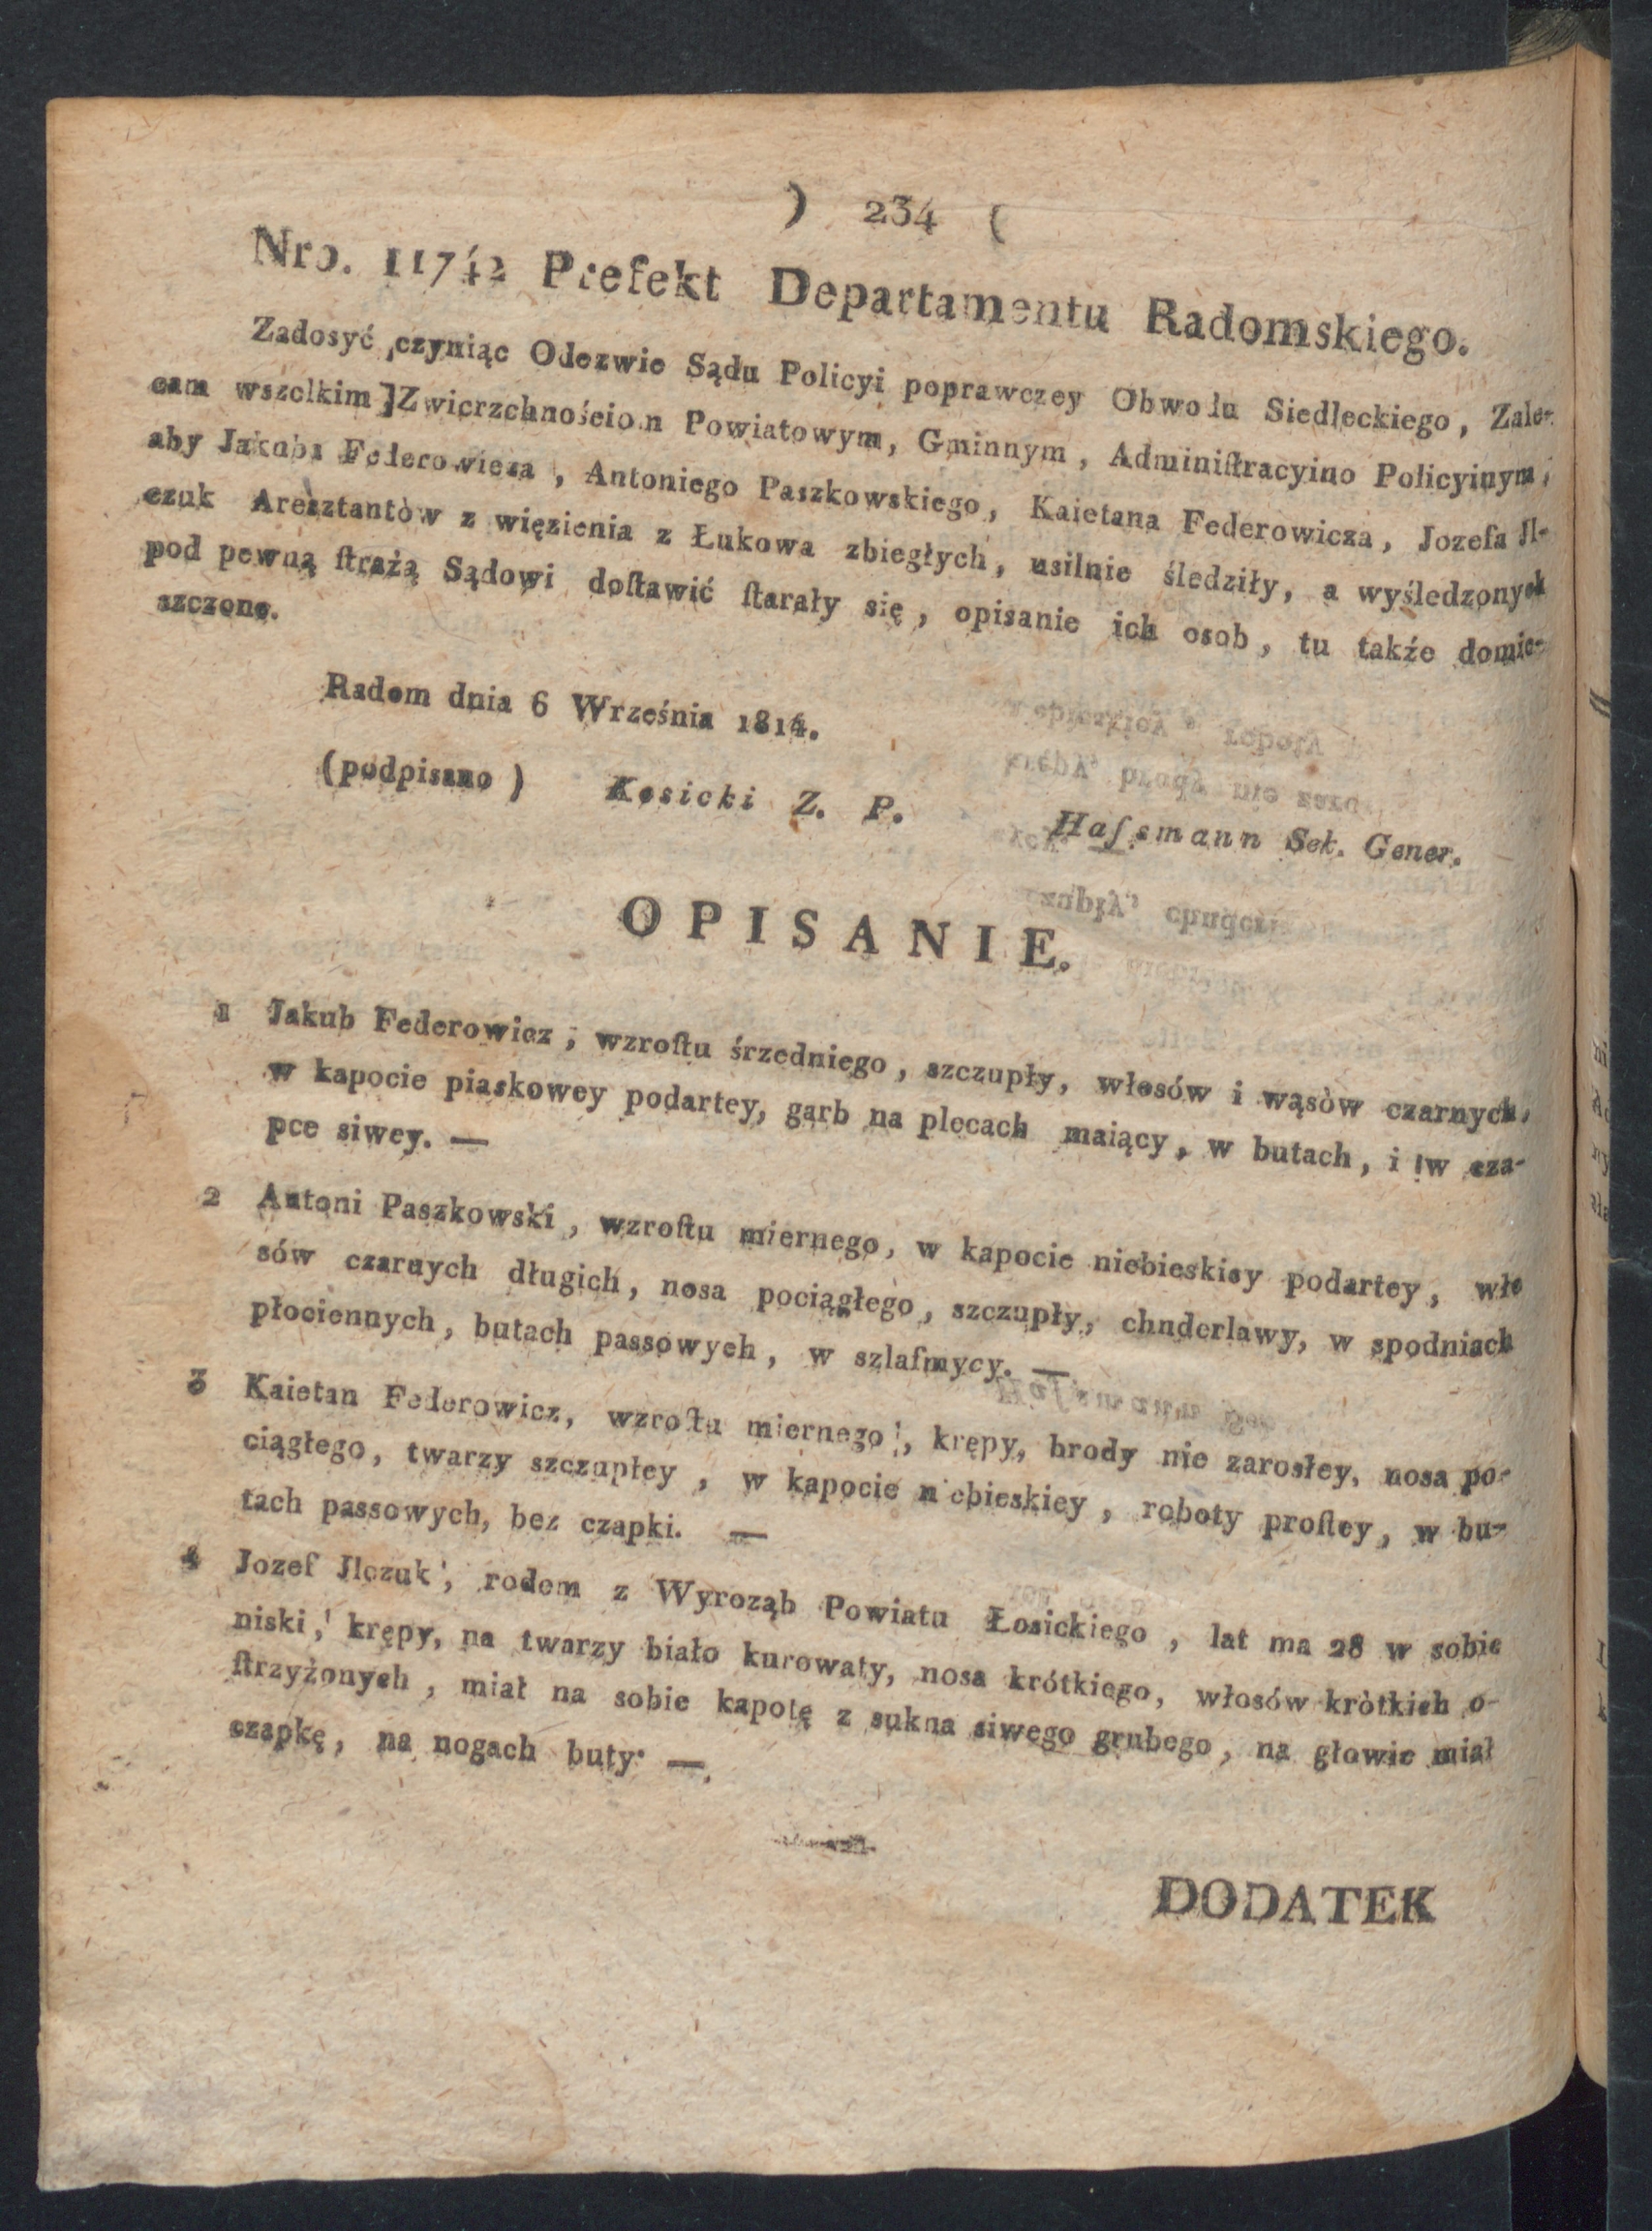 ) 234 (
Nro. 11742 Prefekt Departamentu Radomskiego.
Zadosyć czyniąc Odezwie Sądu Policyi poprawczey Obwodu Siedleckiego, Zale-
cam wszelkim Zwierzchnościom Powiatowym, Gminnym, Adminiſtracyino Policyinym,
aby Jakuba Federowicza, Antoniego Paszkowskiego, Kaietana Federowicza, Jozefa Jl-
czuk Aresztantòw z więzienia z Łukowa zbiegłych, usilnie śledziły, a wyśledzonych
pod pewną ſtrażą Sądowi doſtawić ſtarały się, opisanie ich osob, tu także domie-
szczone.
Radom dnia 6 Września 1814.
(podpisano) Kosicki Z. P. Haſsmann Sek. Gener.
OPISANIE.
1 Jakub Federowicz, wzroſtu śrzedniego, szczupły, włosów i wąsòw czarnych,
w kapocie piaskowey podartey, garb na plecach maiący, w butach, i w cza-
pce siwey. —
2 Antoni Paszkowski, wzroſtu miernego, w kapocie niebieskiey podartey, wło
sów czarnych długich, nosa pociągłego, szczupły, chnderlawy, w spodniach
płociennych, butach passowych, w szlafmycy. —
3 Kaietan Federowicz, wzroſtu miernego, krępy, brody nie zarosłey, nosa po-
ciągłego, twarzy szczupłey, w kapocie niebieskiey, roboty proſtey, w bu-
tach passowych, bez czapki. —
4 Jozef Jlczuk, rodem z Wyroząb Powiatu Łosickiego, lat ma 28 w sobie
niski, krępy, na twarzy biało kurowaty, nosa krótkiego, włosów kròtkich o-
ſtrzyżonych, miał na sobie kapotę z sukna siwego grubego, na głowie miał
czapkę, na nogach buty. —
DODATEK